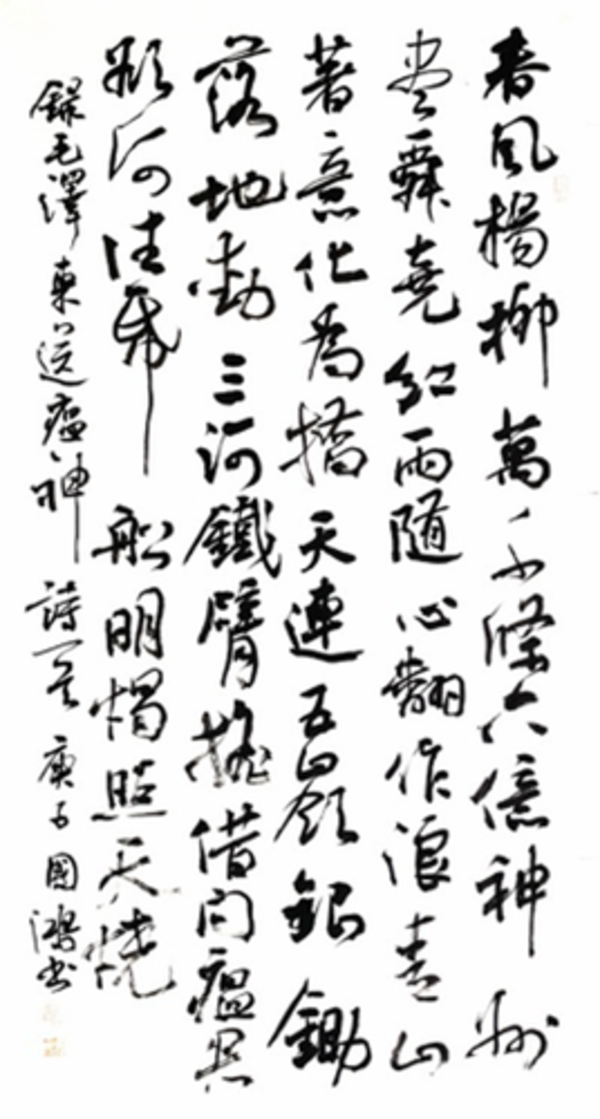 春風楊柳萬千條六億神州
尽舜堯紅雨随心翻作浪青山
著意化為橋天連五嶺銀鋤
落地動三河鐵臂搖借問瘟君
欲何往帋船明燭照天燒
錄毛澤東送瘟神詩一首 庚子國鴻書